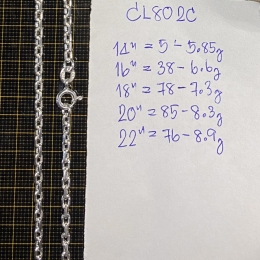 CL802C
14" = 5 - 5.85g
16" = 38 - 6.6g
18" = 78 - 7.3g
20" = 85 - 8.3g
22" = 76 - 8.9g